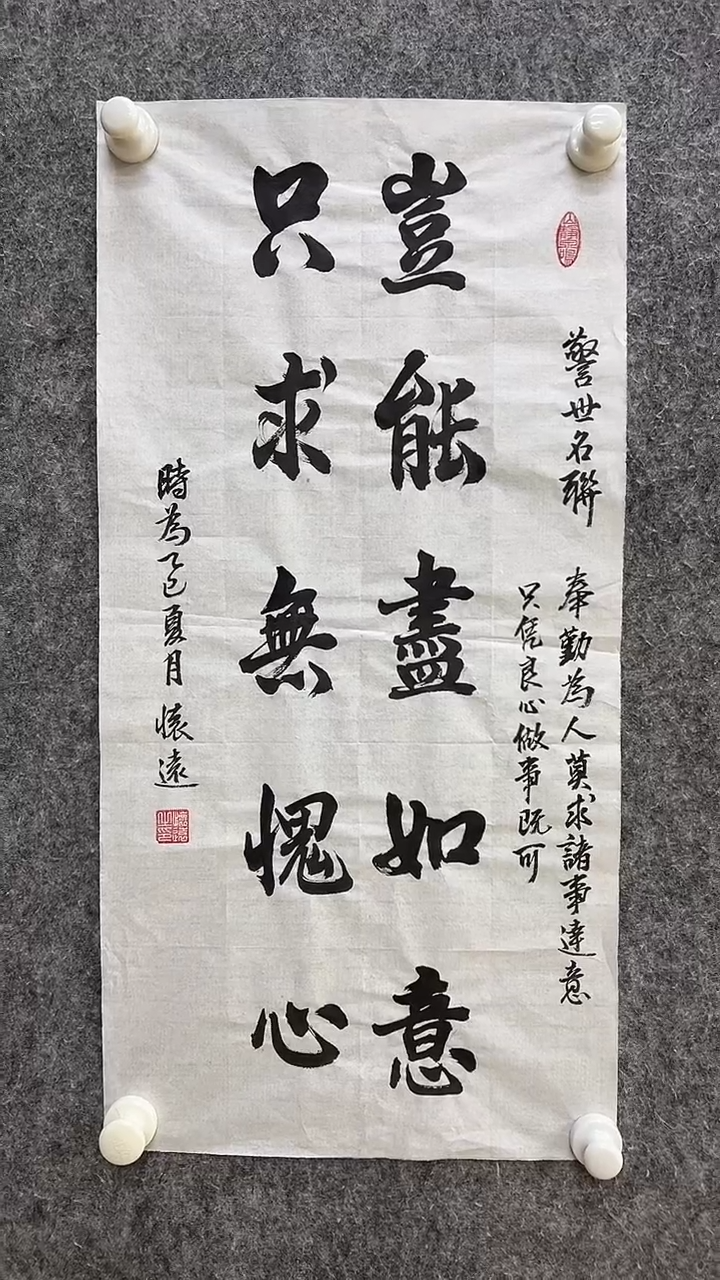 警世名聯 奉勤為人莫求諸事達意
只凭良心做事既可
豈能盡如意
只求無愧心
時為乙巳夏月 懷遠